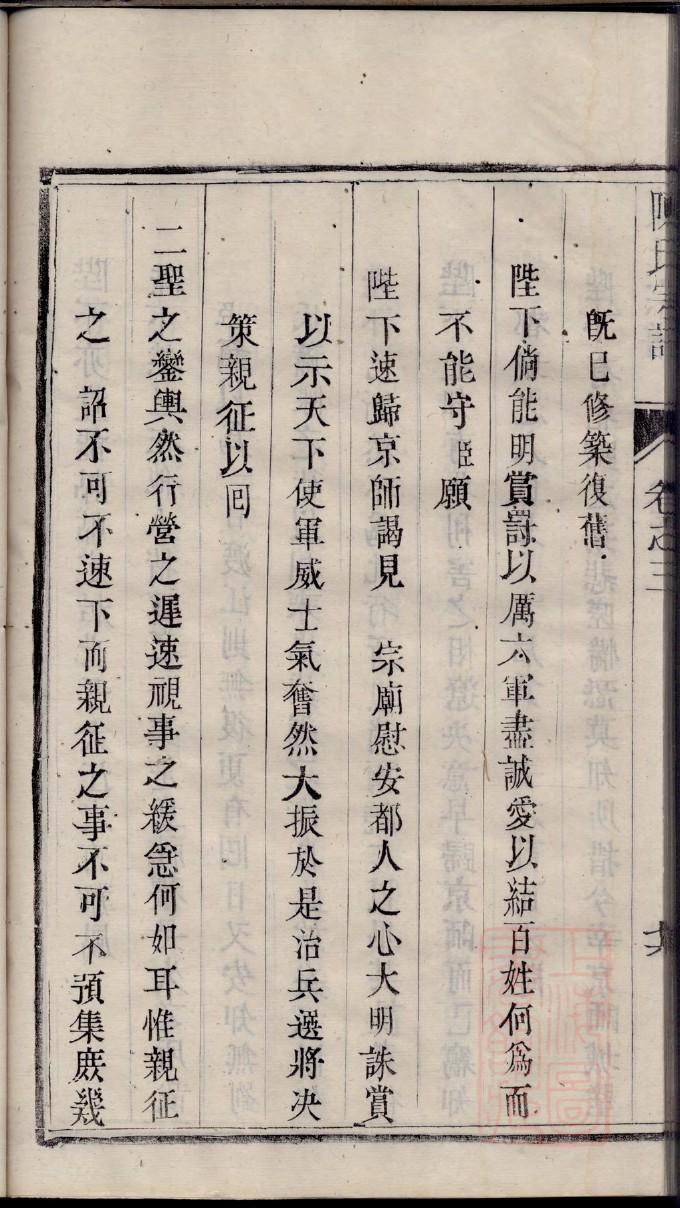 陳氏宗譜
卷之三
既已修築復舊
陛下倘能明賞罰以厲六軍盡誠愛以結百姓何爲而
不能守臣願
陛下速歸京師謁見 宗廟慰安都人之心大明誅賞
以示天下使軍威士氣奮然大振於是治兵選將决
策親征以回
二聖之鑾輿然行營之遲速視事之緩急何如耳惟親征
之 詔不可不速下而親征之事不可不預集庻幾